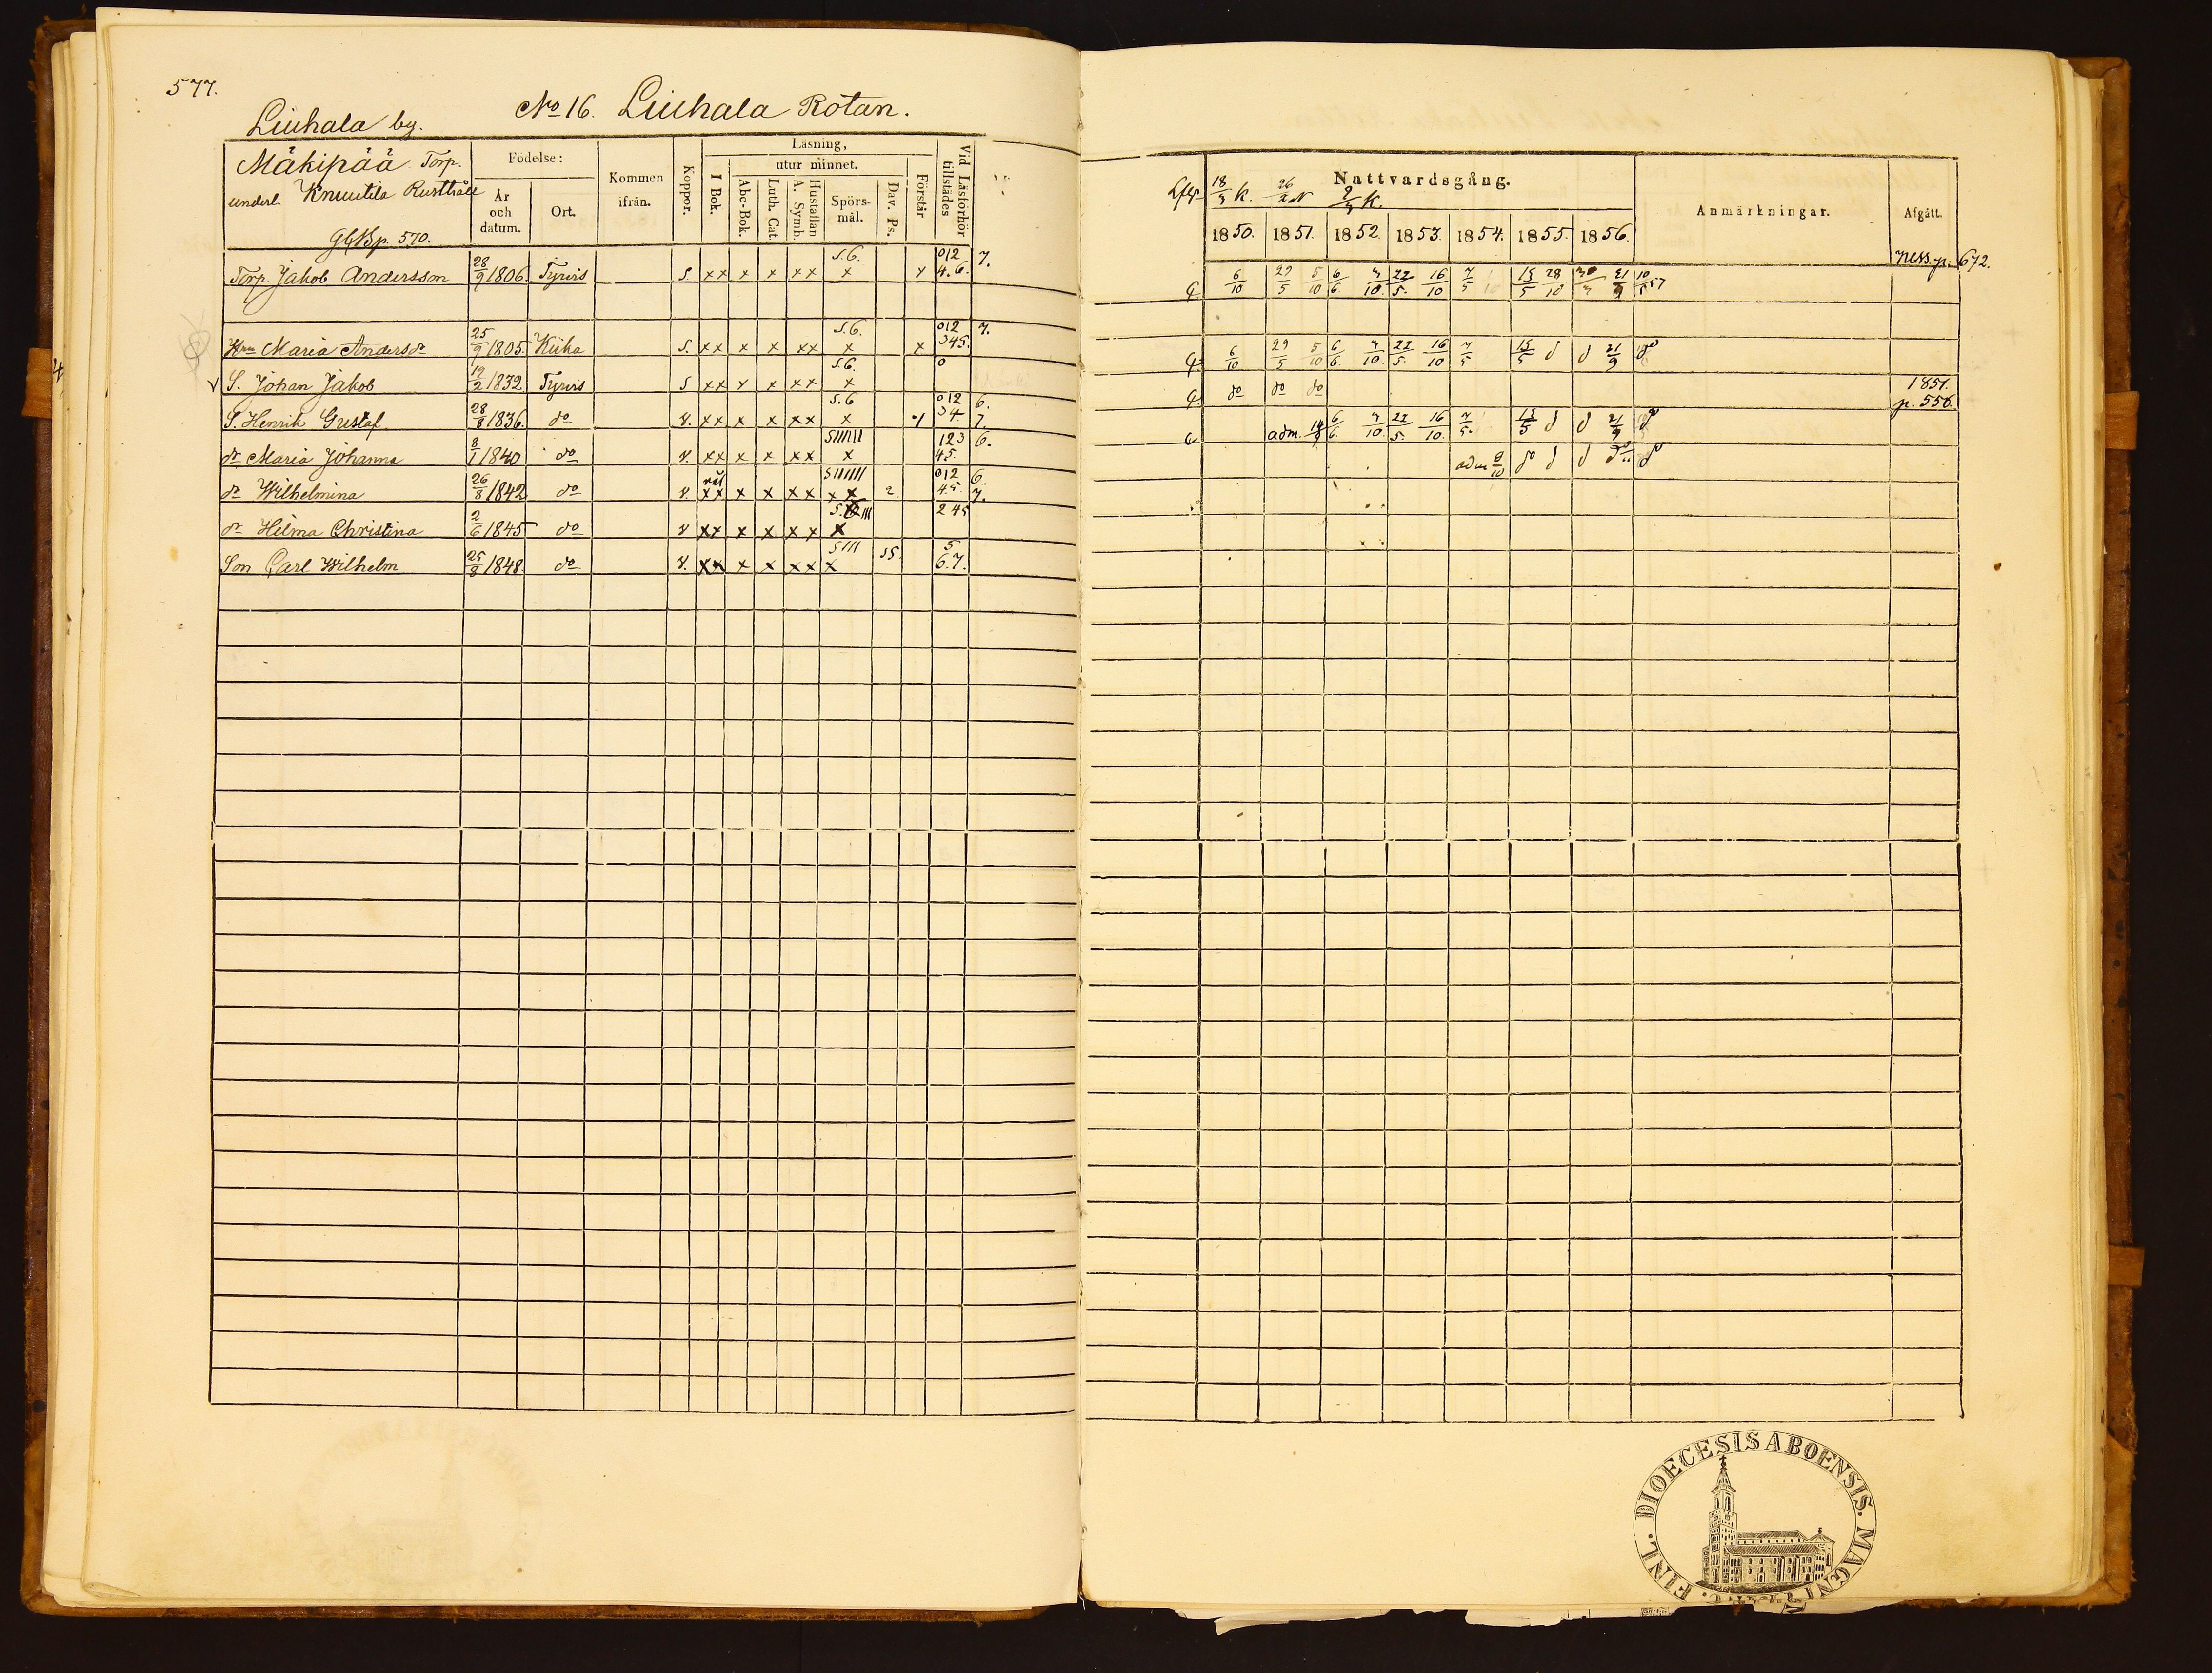 577.
No 16. Liuhala Rotan.
Liuhala by.
Mäkipää Torp.
underl. Knuutila Rusthåll
GCB p. 570.
Födelse:
År och datum.
Ort.
Kommen ifrån.
Koppor.
Läsning,
I Bok.
utur minnet.
Abc-Bok.
Luth. Cat.
Hustaflan A. Symb.
Spörs- mål.
Dav. Ps.
Förstår
Vid Läsförhör tillstädes
Nattvardsgång.
18/3 K. 26/2 N 2/3 K.
1850. 1851. 1852. 1853. 1854. 1855. 1856.
Anmärkningar.
Afgått.
ness. p. 672.
Torp. Jakob Andersson 28/9 1806. Tyrvis S. xx x x xx S.6. x x 012 4.6. 7. 6/10 29/5 5/10 6/6. 3/10. 22/5. 16/10 7/5 15/5 28/10 21/9 10/5 57
Hru Maria Andersdr 25/9 1805. Kiika S. xx x x xx S.6. x x 012 345. 7. 6/10 29/5 5/10 6/6. 3/10. 22/5. 16/10 7/5 15/5 d d 21/9 do
V S. Johan Jakob 19/2 1832 Tyrvis S xx x x xx S.6. x 0 do do do 1851. p. 556.
S. Henrik Gustaf 28/8 1836. do v. xx x x xx S.6 x 012 34. 6. 7. adm. 14/9 6/6. 3/10. 22/5. 16/10. 7/5. 15/5 d d 21/9 do
dr Maria Johanna 8/1 1840 do v. xx x x xx SIIIIII x 123 45. 6. adm 8/10 do d d do
dr Wilhelmina 26/8 1842 do v. xx x x xx SIIIIIII x x 2 012 45. 6. 7.
dr Hilma Christina 2/6 1845 do v xx x x xx x 245
Son Carl Wilhelm 25/8 1848 do v. xx x x xx SIII x 15. 5 6.7.
FINL. DIOECESIS ABOENSIS. MAGNI